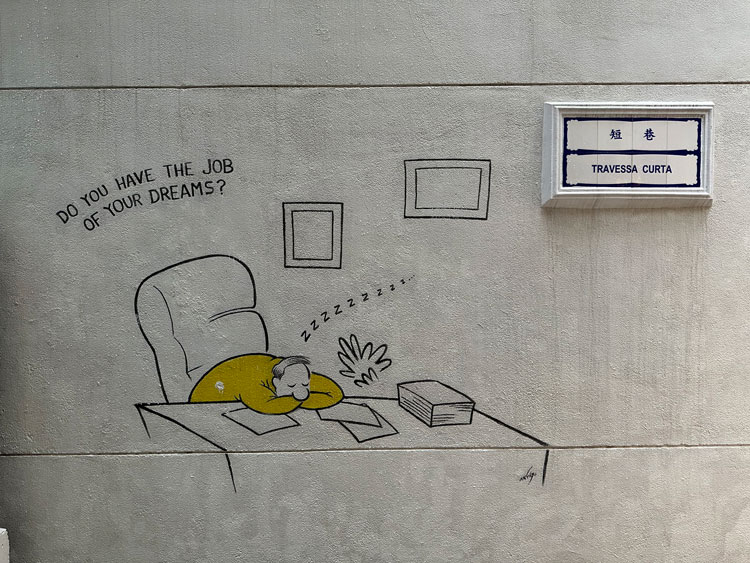 DO YOU HAVE THE JOB
OF YOUR DREAMS?
短巷
TRAVESSA CURTA
Z Z Z Z Z Z Z Z Z Z...